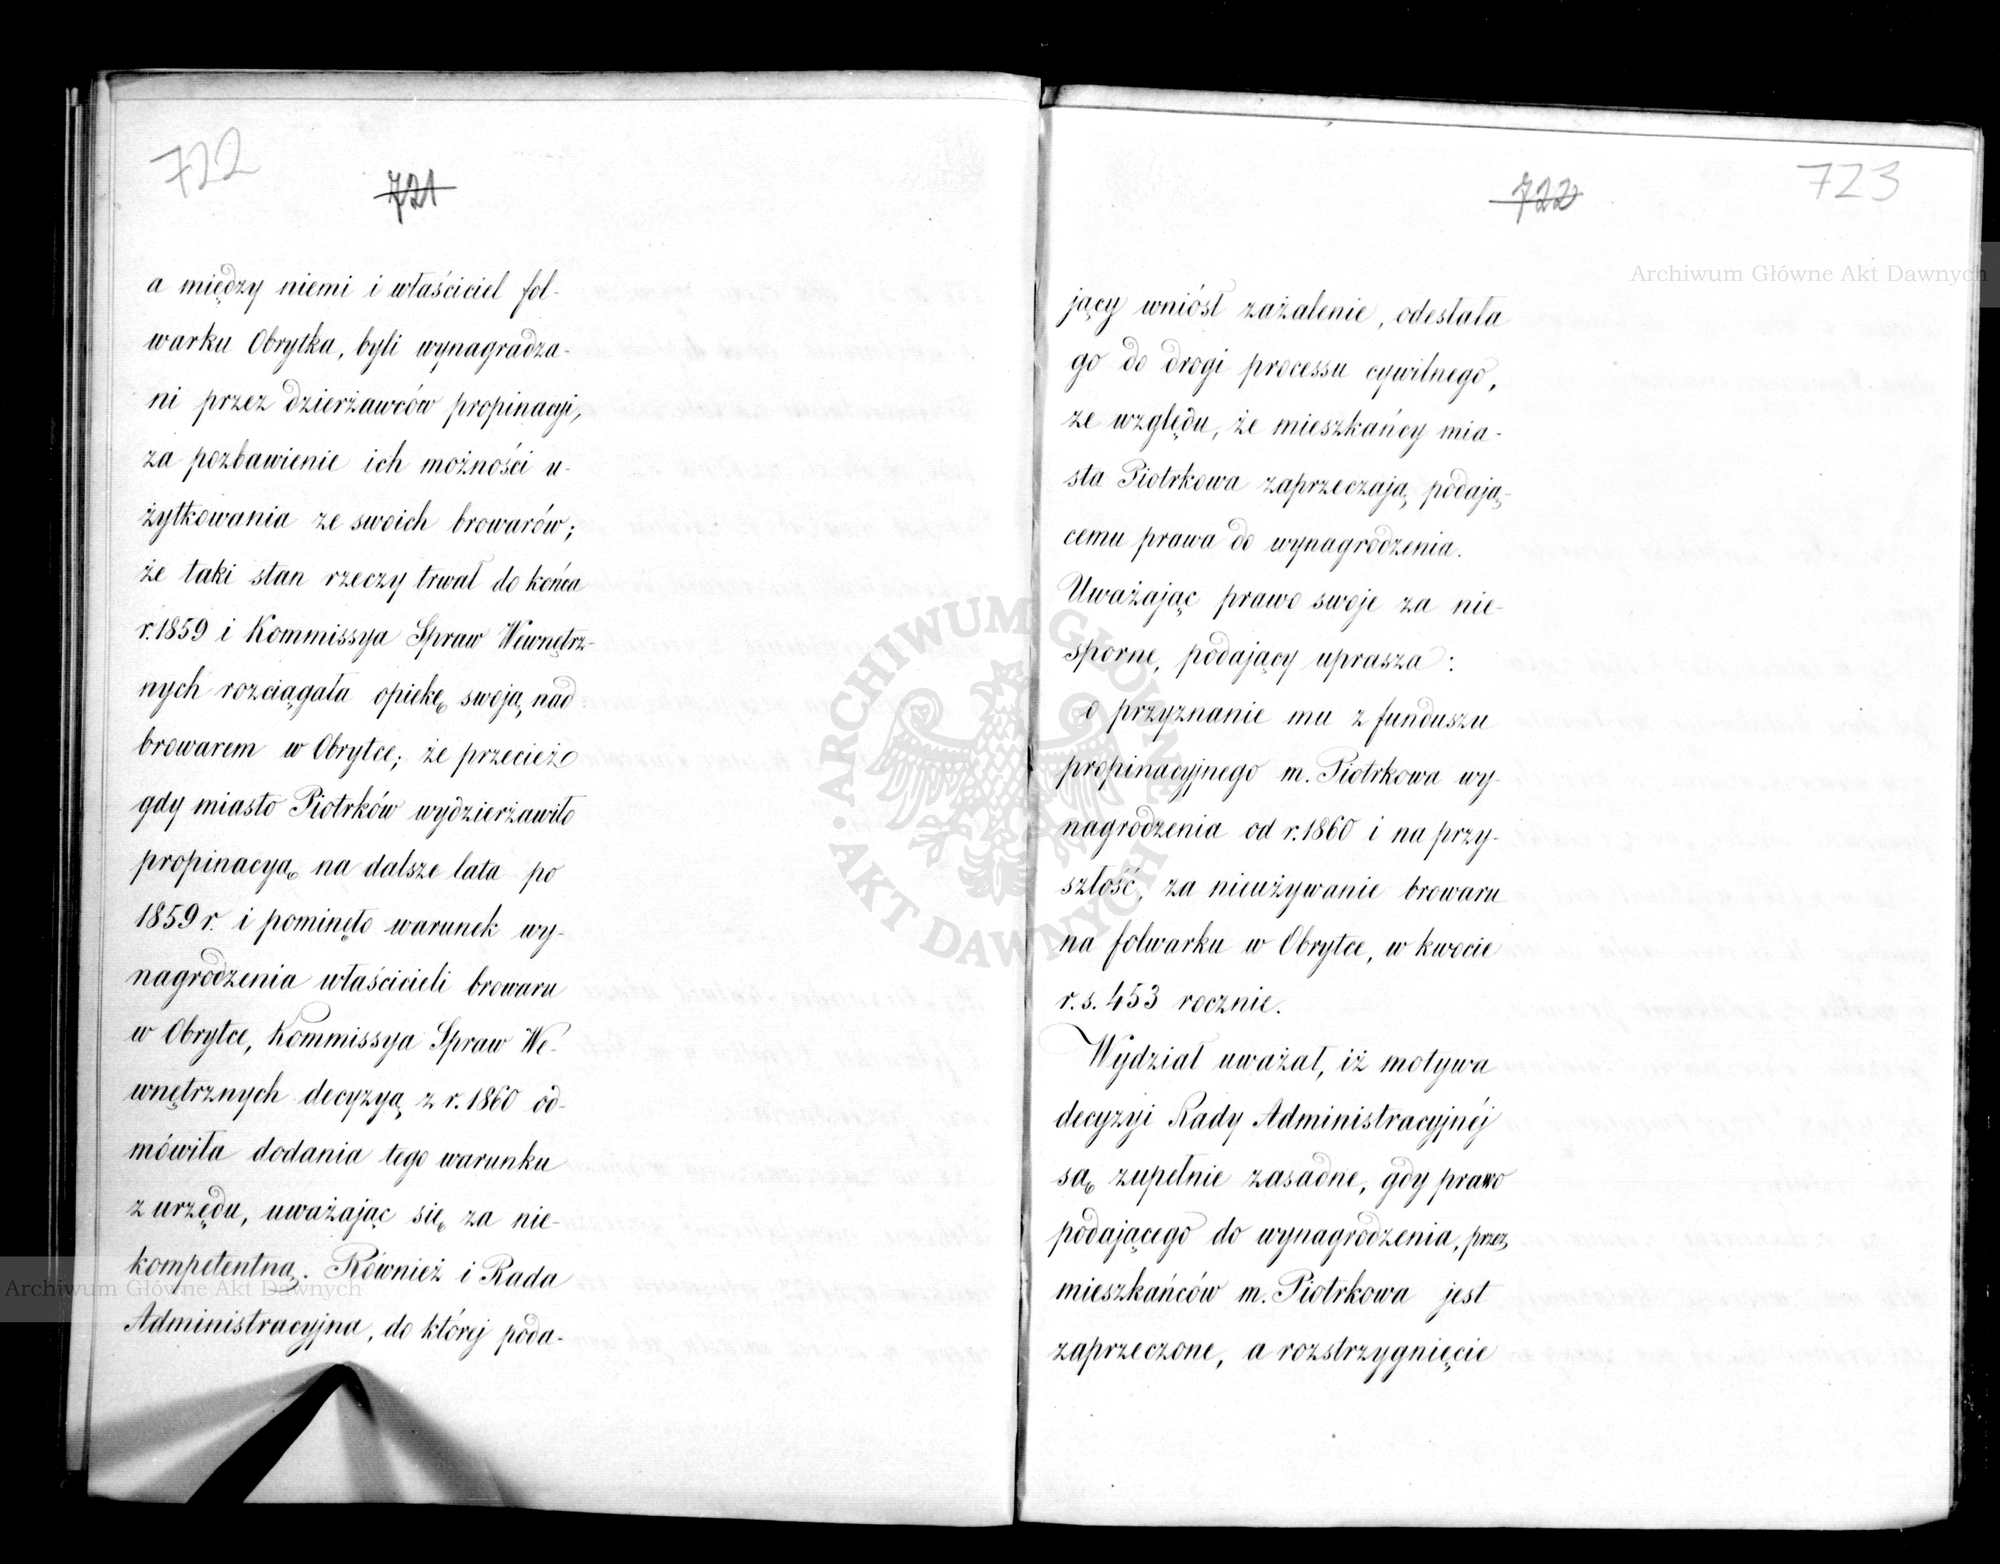 722
721
a między niemi i właściciel fol-
warku Obrytka, byli wynagradza-
ni przez dzierżawców propinacyi,
za pozbawienie ich możności u-
żytkowania ze swoich browarów;
że taki stan rzeczy trwał do końca
r. 1859 i Kommissya Spraw Wewnętrz-
nych rozciągała opiekę swoją nad
browarem w Obrytce; że przecież
gdy miasto Piotrków wydzierżawiło
propinacyą na dalsze lata po
1859 r. i pominęło warunek wy-
nagrodzenia właścicieli browaru
w Obrytce, Kommissya Spraw We-
wnętrznych decyzyą z r. 1860 od-
mówiła dodania tego warunku
z urzędu, uważając się za nie-
kompetentną. Również i Rada
Administracyjna, do której poda-
722
723
jący wniósł zażalenie, odesłała
go do drogi processu cywilnego,
ze względu, że mieszkańcy mia-
sta Piotrkowa zaprzeczają podają-
cemu prawa do wynagrodzenia.
Uważając prawo swoje za nie-
sporne, podający uprasza:
o przyznanie mu z funduszu
propinacyjnego m. Piotrkowa wy-
nagrodzenia od r. 1860 i na przy-
szłość, za nieużywanie browaru
na folwarku w Obrytce, w kwocie
r. s. 453 rocznie.
Wydział uważał, iż motywa
decyzyi Rady Administracyjnéj
są zupełnie zasadne, gdy prawo
podającego do wynagrodzenia, przez
mieszkańców m. Piotrkowa jest
zaprzeczone, a rozstrzygnięcie
Archiwum Główne Akt Dawnych
ARCHIWUM GŁÓWNE AKT DAWNYCH
Archiwum Główne Akt Dawnych